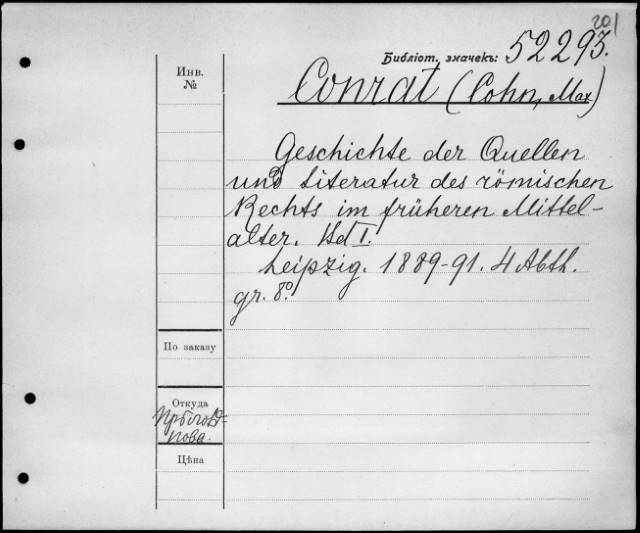 201
Библіот. значекъ: 52293.
Инв.
№
Conrat (Cohn, Max)
Geschichte der Quellen
und Literatur des römischen
Rechts im früheren Mittel-
alter. Bd I.
Leipzig. 1889-91. 4 Abth.
gr. 8º.
По заказу
Откуда
Цѣна